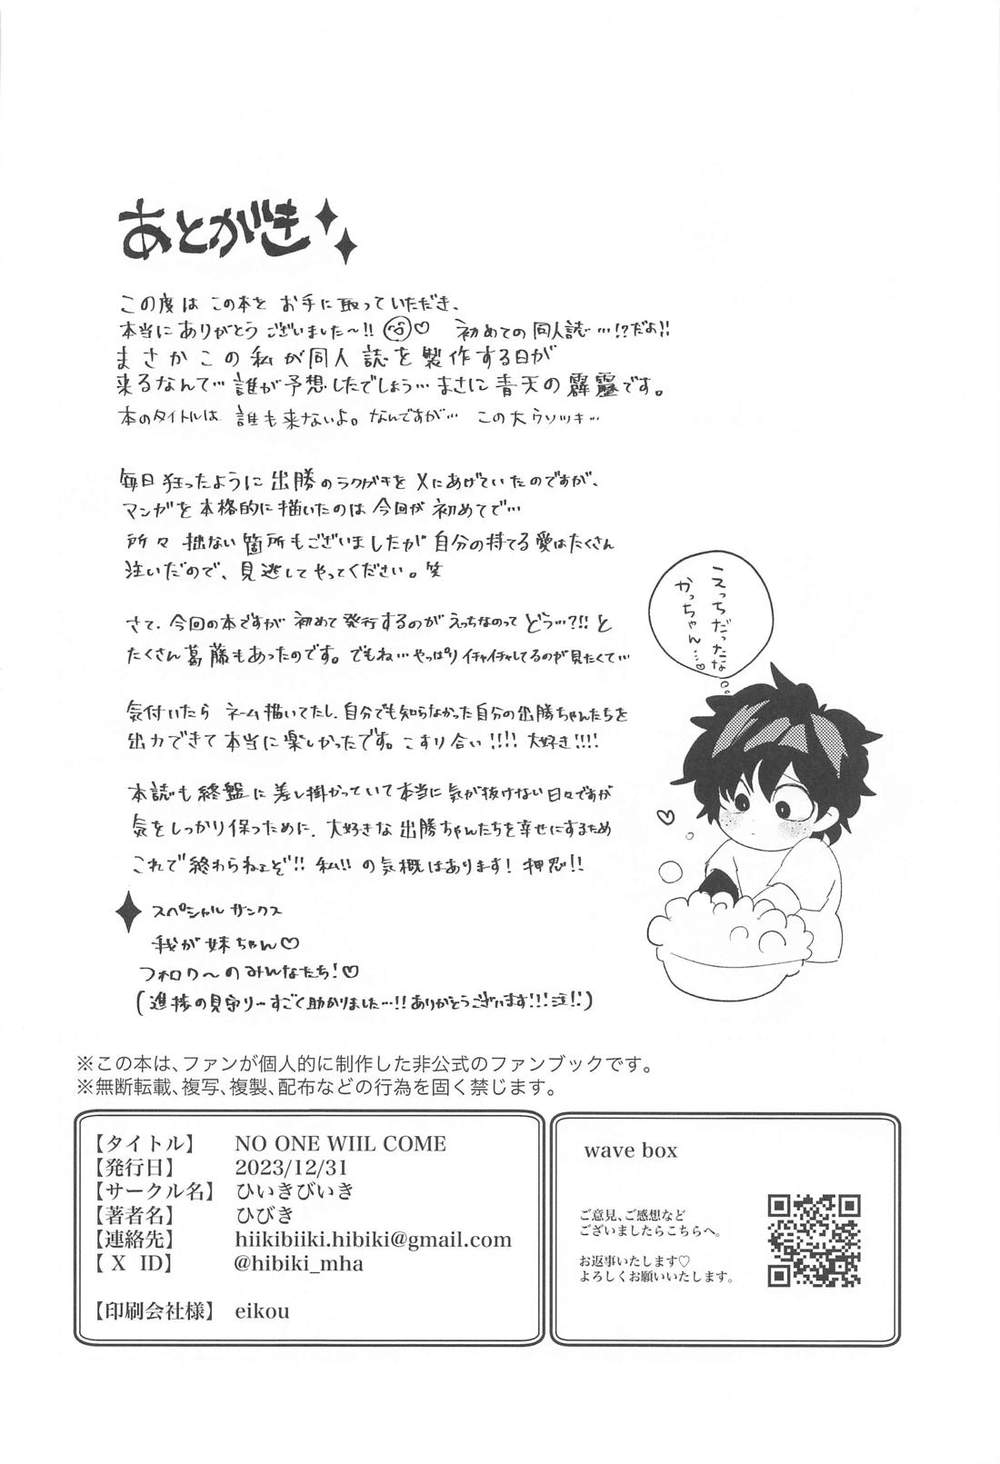 あとがき
この度は この本を お手に取っていただき、
本当に ありがとう ございました〜!! ♡ 初めての同人誌…!?だよ!!
まさかこの私が同人誌を製作する日が
来るなんて…誰が予想したでしょう…まさに青天の霹靂です。
本のタイトルは 誰も来ないよ。なんですが… この大ウソツキ…
毎日狂ったように出勝のラクガキをXにあげていたのですが、
マンガを本格的に描いたのは今回が初めてで…
所々 拙ない箇所もございましたが自分の持てる愛はたくさん
注いだので、見逃してやってください。笑
さて、今回の本ですが初めて発行するのがえっちなのってどう…?!!と
たくさん葛藤もあったのです。でもね…やっぱりイチャイチャしてるのが見たくて…
気付いたら ネーム描いてたし、自分でも知らなかった自分の出勝ちゃんたちを
出力できて本当に楽しかったです。こすり合い!!!! 大好き!!!!
本誌も終盤に差し掛かっていて本当に気が抜けない日々ですが
気をしっかり保つために、大好きな出勝ちゃんたちを幸せにするため
これで終わらねェぞ!!私!!の気概はあります! 押忍!!
スペシャルサンクス
我が妹ちゃん♡
フォロワ〜のみんなたち!♡
(進捗の見守りーすごく助かりました…!!ありがとうございます!!!泣!!)
えっちだったな
かっちゃん…♡
※この本は、ファンが個人的に制作した非公式のファンブックです。
※無断転載、複写、複製、配布などの行為を固く禁じます。
【タイトル】 NO ONE WIIL COME
【発行日】 2023/12/31
【サークル名】 ひいきびいき
【著者名】 ひびき
【連絡先】 hiikibiiki.hibiki@gmail.com
【 X ID】 @hibiki_mha
【印刷会社様】 eikou
wave box
ご意見、ご感想など
ございましたらこちらへ。
お返事いたします♡
よろしくお願いいたします。